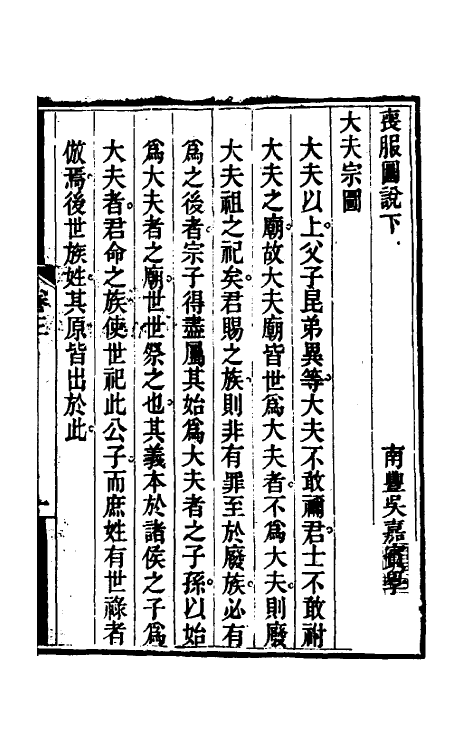 喪服圖說下　南豐吳嘉賓學
大夫宗圖
大夫以上父子昆弟異等大夫不敢禰君士不敢祔
大夫之廟故大夫廟皆世爲大夫者不爲大夫則廢
大夫祖之祀矣君賜之族則非有罪至於廢族必有
爲之後者宗子得盡屬其始爲大夫者之子孫以始
爲大夫者之廟世世祭之也其義本於諸侯之子爲
大夫者君命之族使世祀此公子而庶姓有世祿者
倣焉後世族姓其原皆出於此
卷三